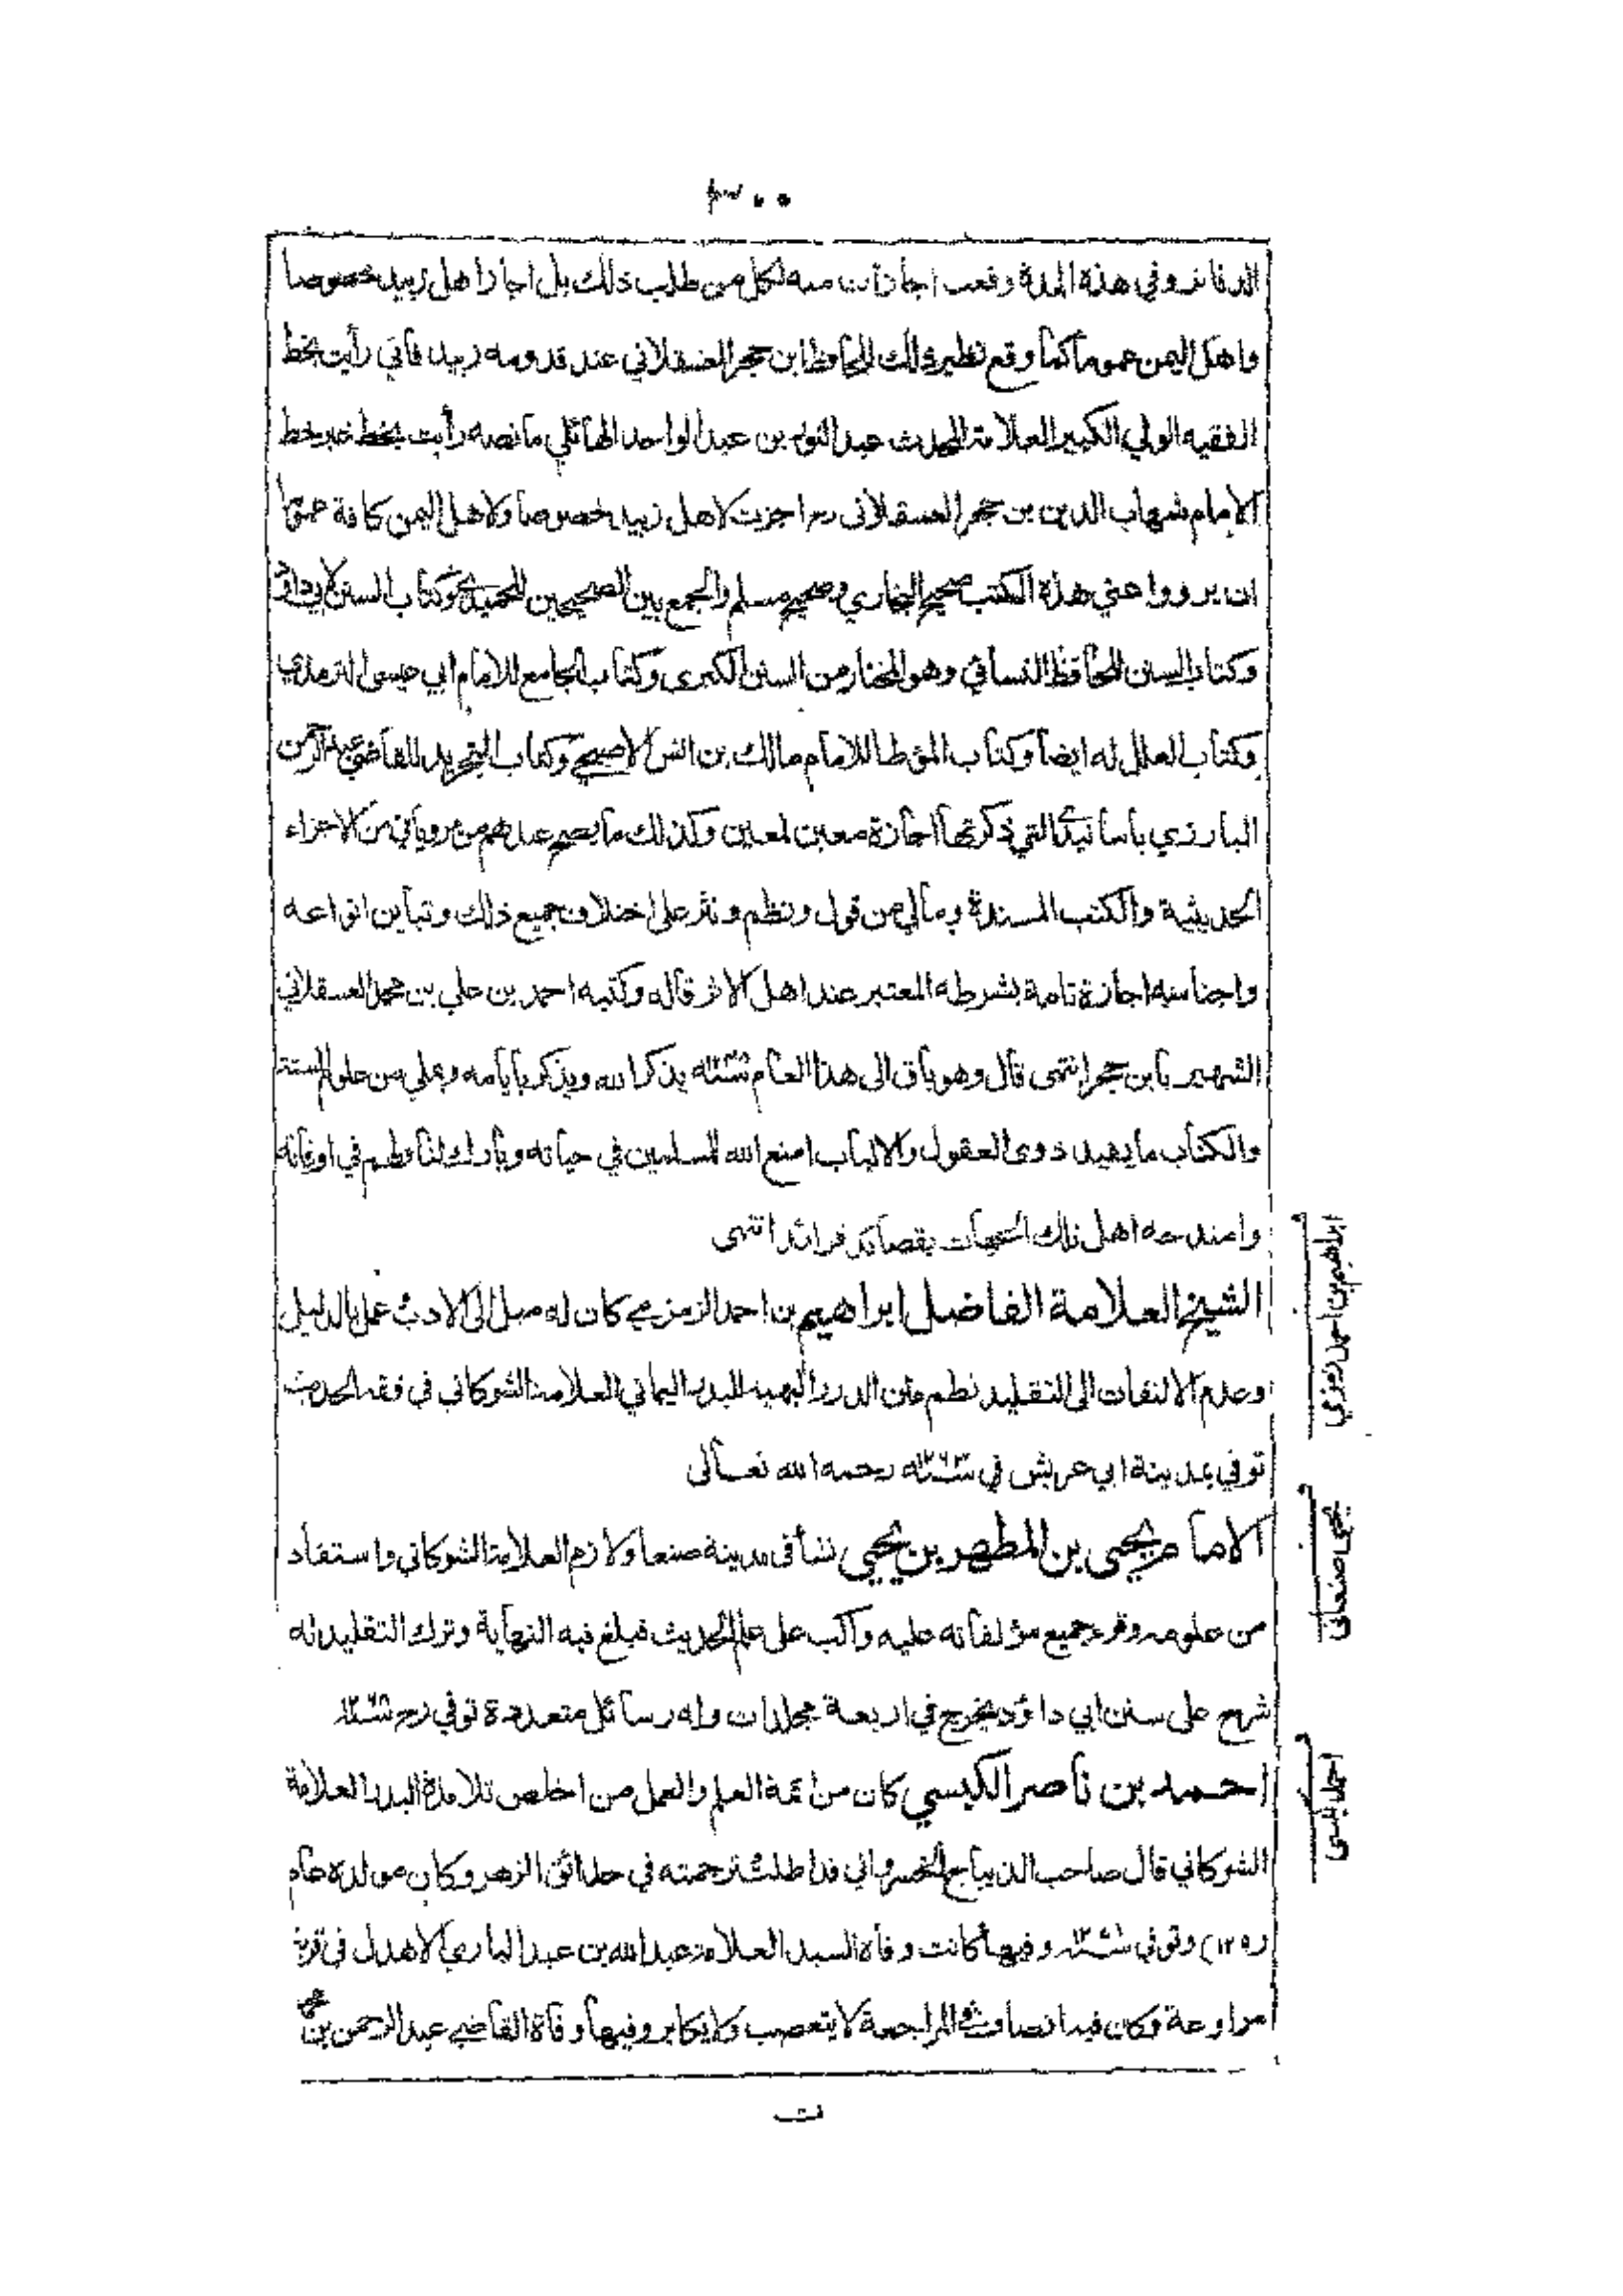 ٣٠٠
وفي هذه المدة وقعت اجازات منه لكل من طلب ذلك بل اجاز اهل زبيد خصوصا
واهل اليمن عموما كما وقع نظير ذلك للحافظ ابن حجر العسقلاني عند قدومه زبيد فاني رأيت بخط
الفقيه الولي الكبير العلامة المحدث عبد بن عبد الواحد ما نصه رأيت بخط خط
الامام شهاب الدين بن حجر العسقلانى اجزت لاهل زبيد خصوصا ولاهل اليمن كافة عموما
ان يرووا عني هذه الكتب صحيح البخاري وصحيح مسلم والجمع بين الصحيحين للحميدي وكتاب السنن لابي داؤد
وكتاب السنن للحافظ النسائي وهو المختار من السنن الكبرى وكتاب الجامع للامام ابي عيسى الترمذي
وكتاب العلل له ايضا وكتاب المؤطا للامام مالك بن انس الاصبحي وكتاب التجريد للقاضي عبد الرحمن
البارزي بأسانيدي التي ذكرتها اجازة معين لمعين وكذلك ما يصح عندهم من مروياتي من الاجزاء
الحديثية والكتب المسندة وما لي من قول ونظم ونثر على اختلاف جميع ذلك وتباين انواعه
واجناسه اجازة تامة بشرطه المعتبر عند اهل الاثر قاله وكتبه احمد بن علي بن محمد العسقلاني
الشهير بابن حجر انتهى قال وهو باق الى هذا العام يذكر الله ويذكر بأيامه ويملي من علوم السنة
والكتاب ما يفيد ذوى العقول والالباب امتع الله المسلمين في حياته وبارك لنا ولهم في اوقاته
وامتدحه اهل تلك الجهات بقصائد فرائد انتهى
الشيخ العلامة الفاضل ابراهيم بن احمد الزمزمي كان له ميل الى الادب عمل بالدليل
وعدم الالتفات الى التقليد نظم متن الدرر البهية للبدر اليماني العلامة الشوكاني في فقه الحديث
توفي بمدينة ابي عريش في سنة رحمه الله تعالى
الامام يحيى بن المطهر بن يحيى نشأ في مدينة صنعا ولازم العلامة الشوكاني واستفاد
من علومه وقرء جميع مؤلفاته عليه وأكب على علم الحديث فبلغ فيه النهاية وترك التقليد له
شرح على سنن ابي داؤد يخرج في اربعة مجلدات وله رسائل متعددة توفي رح
احمد بن ناصر الكبسي كان من ائمة العلم والعمل من اخلص تلامذة البدر العلامة
الشوكاني قال صاحب الديباج الخسرواني ترجمته في حدائق الزهر وكان مولده عام
وتوفي وفيها كانت وفاة السيد العلامة عبد الله بن عبد الباري الاهدل في قرية
مراوعة وكان فيه انصاف في المراجعة لا يتعصب ولا يكابر وفيها وفاة القاضي عبد الرحمن بن
ابراهيم بن احمد زمزمي
يحيى صنعاني
احمد كبسي
ت